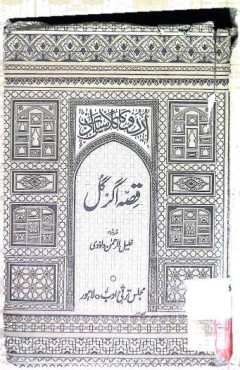 اردو کا کلاسیکی ادب
قصہ اگر گل
مرتبہ
خلیل الرحمن داؤدی
مجلس ترقی ادب لاہور